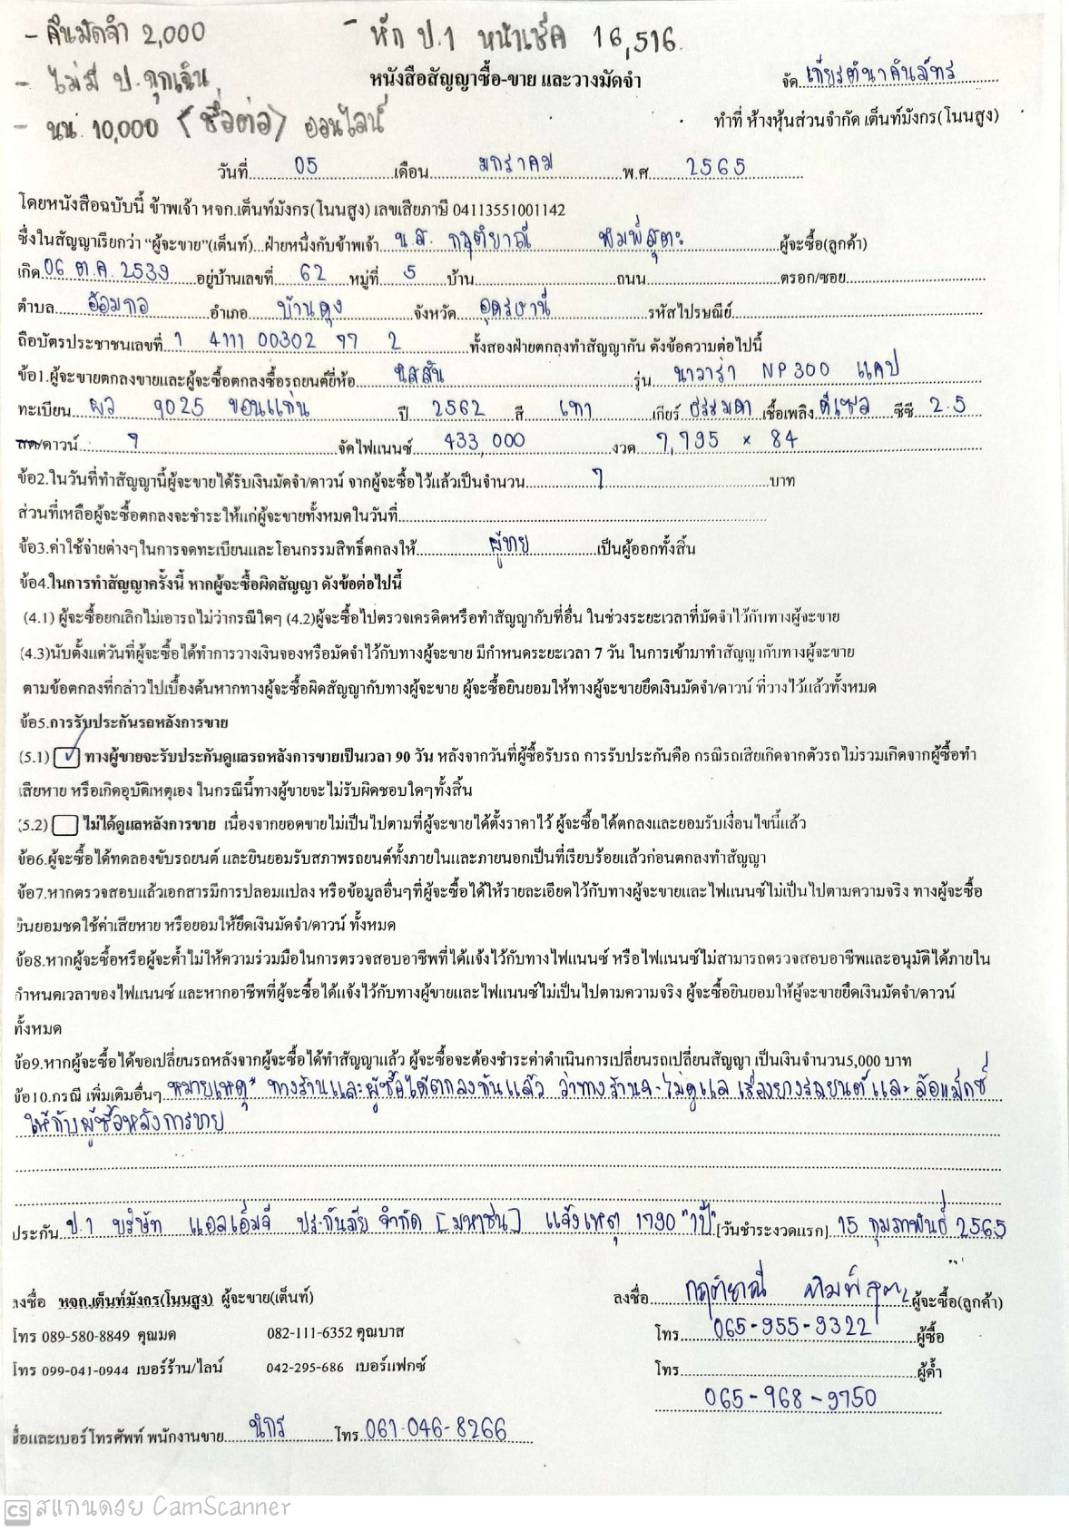 - คืนมัดจำ 2,000
- หัก ป.1 หน้าเช็ค 16,516.
- ไม่มี ป.ฉุกเฉิน
หนังสือสัญญาซื้อ-ขาย และวางมัดจำ
จัด เกียรตินาคินภัทร
- นน. 10,000 (ชื่อต่อ) ออนไลน์
ทำที่ ห้างหุ้นส่วนจำกัด เต็นท์มังกร(โนนสูง)
วันที่ 05 เดือน มกราคม พ.ศ 2565
โดยหนังสือฉบับนี้ ข้าพเจ้า หจก.เต็นท์มังกร(โนนสูง) เลขเสียภาษี 04113551001142
ซึ่งในสัญญาเรียกว่า "ผู้จะขาย"(เต็นท์)...ฝ่ายหนึ่งกับข้าพเจ้า น.ส. กฤติยาณี พิมพ์สุตะ ผู้จะซื้อ(ลูกค้า)
เกิด 06 ต.ค. 2539 อยู่บ้านเลขที่ 62 หมู่ที่ 5 บ้าน ถนน ตรอก/ซอย
ตำบล อ้อมกอ อำเภอ บ้านดุง จังหวัด อุดรธานี รหัสไปรษณีย์
ถือบัตรประชาชนเลขที่ 1 4111 00302 97 2 ทั้งสองฝ่ายตกลงทำสัญญากัน ดังข้อความต่อไปนี้
ข้อ1.ผู้จะขายตกลงขายและผู้จะซื้อตกลงซื้อรถยนต์ยี่ห้อ นิสสัน รุ่น นาวาร่า NP300 แคป
ทะเบียน ผว 9025 ขอนแก่น ปี 2562 สี เทา เกียร์ ธรรมดา เชื้อเพลิง ดีเซล ซีซี 2.5
สด/ดาวน์ จัดไฟแนนซ์ 433,000 งวด 7,795 × 84
ข้อ2.ในวันที่ทำสัญญานี้ผู้จะขายได้รับเงินมัดจำ/ดาวน์ จากผู้จะซื้อไว้แล้วเป็นจำนวน บาท
ส่วนที่เหลือผู้จะซื้อตกลงจะชำระให้แก่ผู้จะขายทั้งหมดในวันที่
ข้อ3.ค่าใช้จ่ายต่างๆในการจดทะเบียนและโอนกรรมสิทธิ์ตกลงให้ ผู้ขาย เป็นผู้ออกทั้งสิ้น
ข้อ4.ในการทำสัญญาครั้งนี้ หากผู้จะซื้อผิดสัญญา ดังข้อต่อไปนี้
(4.1) ผู้จะซื้อยกเลิกไม่เอารถไม่ว่ากรณีใดๆ (4.2)ผู้จะซื้อไปตรวจเครดิตหรือทำสัญญากับที่อื่น ในช่วงระยะเวลาที่มัดจำไว้กับทางผู้จะขาย
(4.3)นับตั้งแต่วันที่ผู้จะซื้อได้ทำการวางเงินจองหรือมัดจำไว้กับทางผู้จะขาย มีกำหนดระยะเวลา 7 วัน ในการเข้ามาทำสัญญากับทางผู้จะขาย
ตามข้อตกลงที่กล่าวไปเบื้องต้นหากทางผู้จะซื้อผิดสัญญากับทางผู้จะขาย ผู้จะซื้อยินยอมให้ทางผู้จะขายยึดเงินมัดจำ/ดาวน์ ที่วางไว้แล้วทั้งหมด
ข้อ5.การรับประกันรถหลังการขาย
(5.1) ทางผู้ขายจะรับประกันดูแลรถหลังการขายเป็นเวลา 90 วัน หลังจากวันที่ผู้ซื้อรับรถ การรับประกันคือ กรณีรถเสียเกิดจากตัวรถ ไม่รวมเกิดจากผู้ซื้อทำ
เสียหาย หรือเกิดอุบัติเหตุเอง ในกรณีนี้ทางผู้ขายจะไม่รับผิดชอบใดๆทั้งสิ้น
(5.2) ไม่ได้ดูแลหลังการขาย เนื่องจากยอดขายไม่เป็นไปตามที่ผู้จะขายได้ตั้งราคาไว้ ผู้จะซื้อได้ตกลงและยอมรับเงื่อนไขนี้แล้ว
ข้อ6.ผู้จะซื้อได้ทดลองขับรถยนต์ และยินยอมรับสภาพรถยนต์ทั้งภายในและภายนอกเป็นที่เรียบร้อยแล้วก่อนตกลงทำสัญญา
ข้อ7.หากตรวจสอบแล้วเอกสารมีการปลอมแปลง หรือข้อมูลอื่นๆที่ผู้จะซื้อได้ให้รายละเอียดไว้กับทางผู้จะขายและไฟแนนซ์ไม่เป็นไปตามความจริง ทางผู้จะซื้อ
ยินยอมชดใช้ค่าเสียหาย หรือยอมให้ยึดเงินมัดจำ/ดาวน์ ทั้งหมด
ข้อ8.หากผู้จะซื้อหรือผู้จะค้ำไม่ให้ความร่วมมือในการตรวจสอบอาชีพที่ได้แจ้งไว้กับทางไฟแนนซ์ หรือไฟแนนซ์ไม่สามารถตรวจสอบอาชีพและอนุมัติได้ภายใน
กำหนดเวลาของไฟแนนซ์ และหากอาชีพที่ผู้จะซื้อได้แจ้งไว้กับทางผู้ขายและไฟแนนซ์ไม่เป็นไปตามความจริง ผู้จะซื้อยินยอมให้ผู้จะขายยึดเงินมัดจำ/ดาวน์
ทั้งหมด
ข้อ9.หากผู้จะซื้อได้ขอเปลี่ยนรถหลังจากผู้จะซื้อได้ทำสัญญาแล้ว ผู้จะซื้อจะต้องชำระค่าดำเนินการเปลี่ยนรถเปลี่ยนสัญญา เป็นเงินจำนวน5,000 บาท
ข้อ10.กรณี เพิ่มเติมอื่นๆ หมายเหตุ* ทางร้านและผู้ซื้อได้ตกลงกันแล้ว ว่าทางร้านจะไม่ดูแล เรื่องยางรถยนต์และ ล้อแม็กซ์
ให้กับผู้ซื้อหลังการขาย
ประกัน ป.1 บริษัท แอลเอ็มจี ประกันภัย จำกัด [มหาชน] แจ้งเหตุ 1790 "1ปี" [วันชำระงวดแรก] 15 กุมภาพันธ์ 2565
ลงชื่อ หจก.เต็นท์มังกร(โนนสูง) ผู้จะขาย(เต็นท์)
ลงชื่อ กฤติยาณี พิมพ์สุตะ ผู้จะซื้อ(ลูกค้า)
โทร 089-580-8849 คุณมด 082-111-6352 คุณบาส
โทร 065-955-9322 ผู้ซื้อ
โทร 099-041-0944 เบอร์ร้าน/ไลน์ 042-295-686 เบอร์แฟกซ์
โทร ผู้ค้ำ
065-968-9750
ชื่อและเบอร์โทรศัพท์ พนักงานขาย นิกร โทร 061-046-8266
CS สแกนด้วย CamScanner